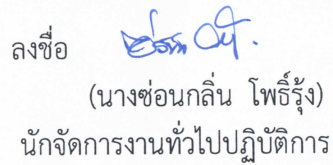 ลงชื่อ
(นางซ่อนกลิ่น โพธิ์รุ้ง)
นักจัดการงานทั่วไปปฏิบัติการ